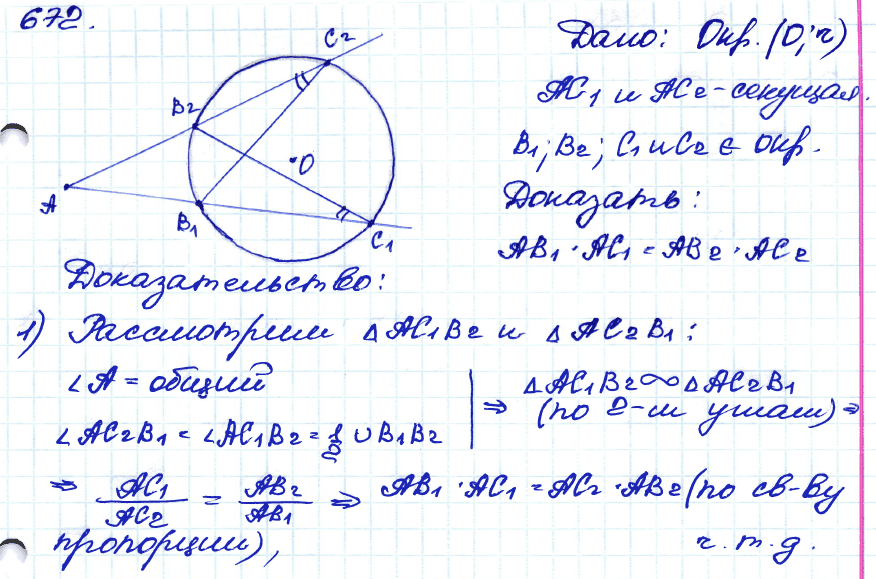 672.
C₂
B₂
O
A
B₁
C₁
Дано: Окр. (O; r)
AC₁ и AC₂ - секущая.
B₁; B₂; C₁ и C₂ ∈ Окр.
Доказать:
AB₁ · AC₁ = AB₂ · AC₂
Доказательство:
1) Рассмотрим △ AC₁B₂ и △ AC₂B₁:
∠A = общий
∠AC₂B₁ = ∠AC₁B₂ = 1/2 ∪ B₁B₂
⇒ △ AC₁B₂ ∞ △ AC₂B₁
(по 2-м углам) ⇒
⇒ AC₁/AC₂ = AB₂/AB₁ ⇒ AB₁ · AC₁ = AC₂ · AB₂ (по св-ву
пропорции), ч.т.д.